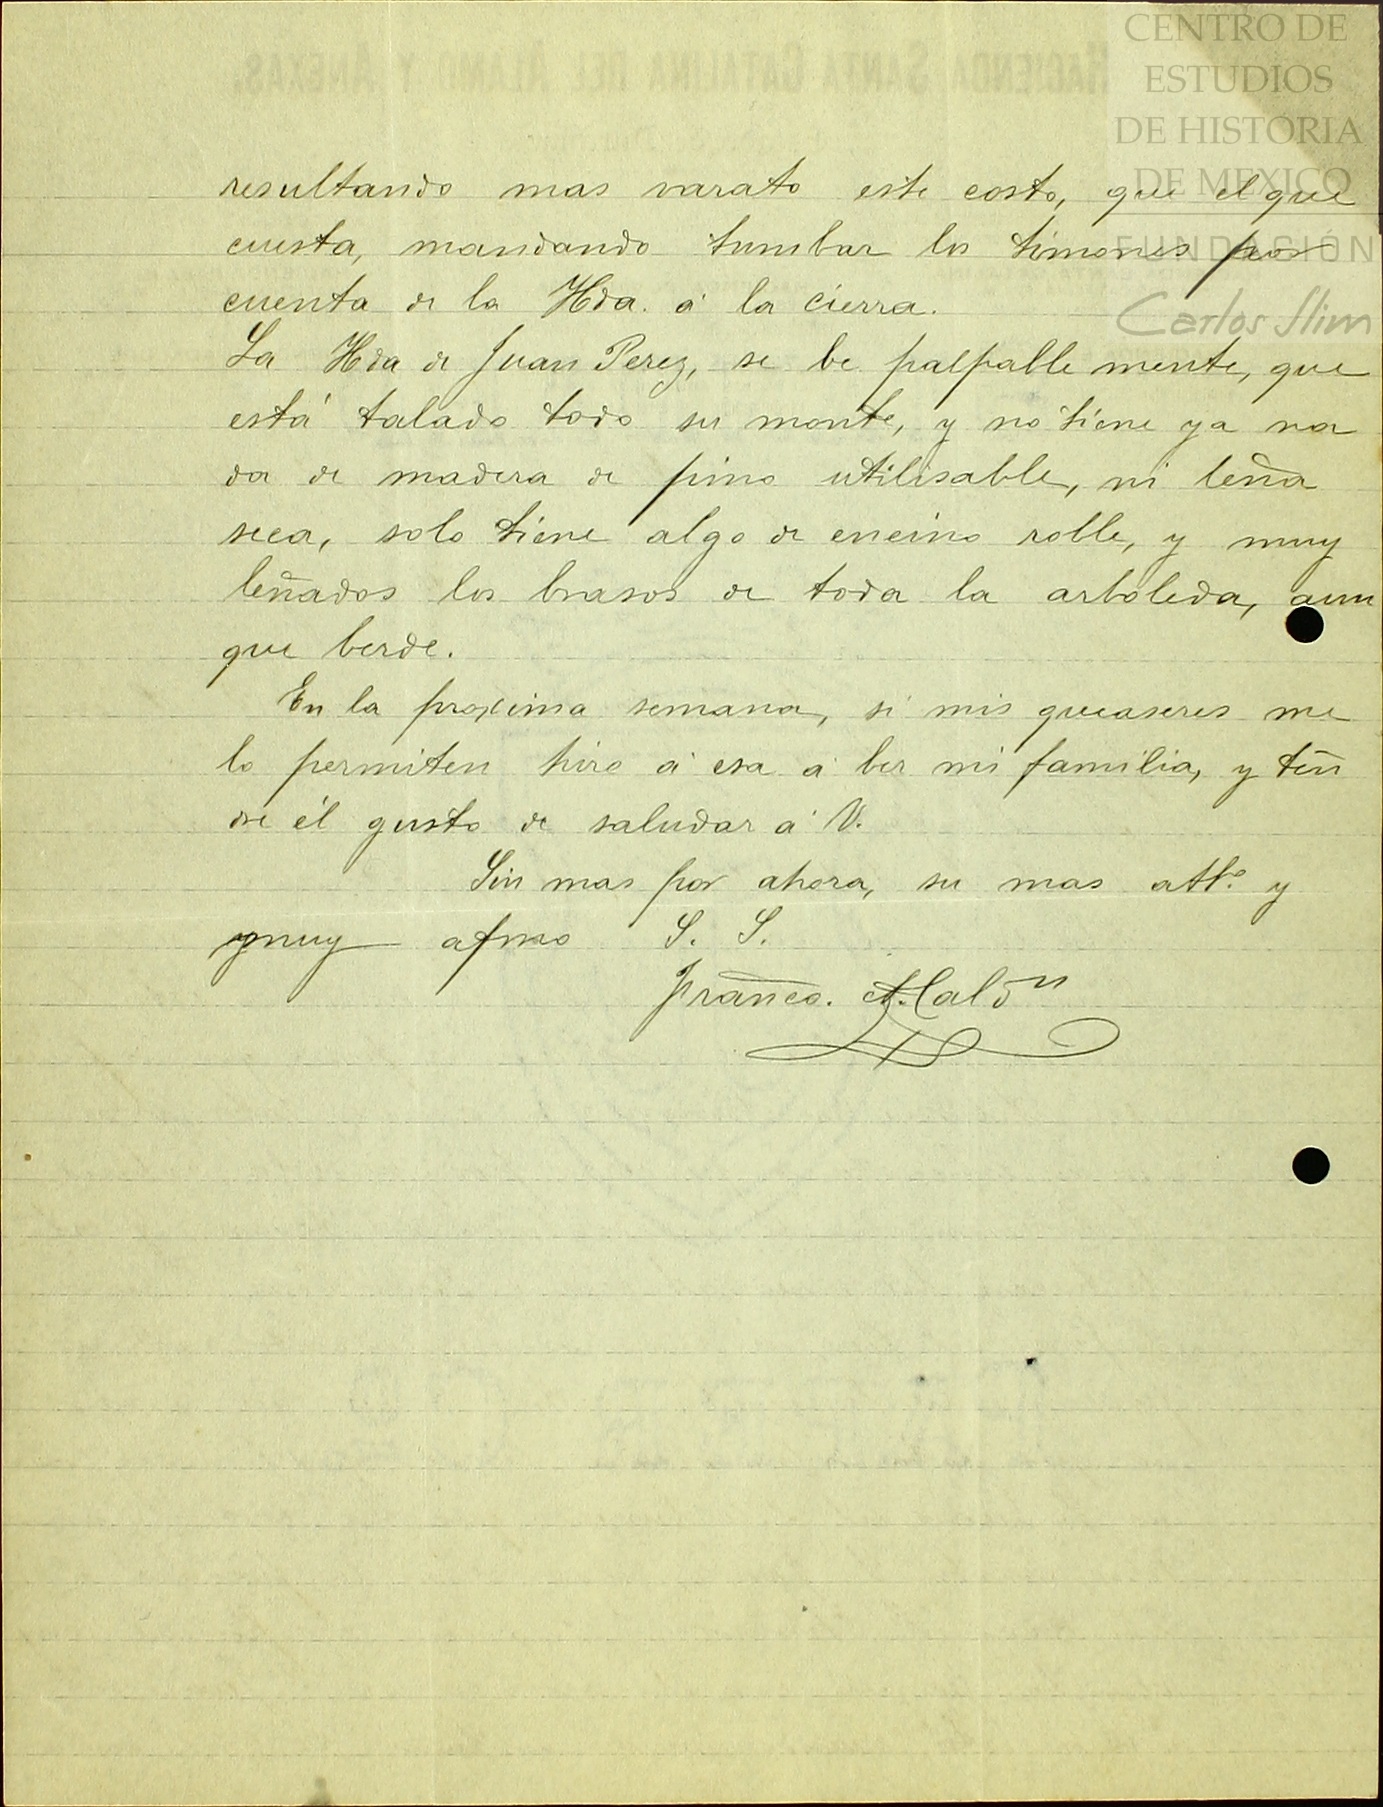 CENTRO DE
ESTUDIOS
DE HISTORIA
DE MEXICO
FUNDACIÓN
Carlos Slim
HACIENDA SANTA CATALINA DEL ALAMO Y ANEXAS.
resultando mas varato este costo, que el que
cuesta, mandando tumbar los timones por
cuenta de la Hda. á la cierra.
La Hda de Juan Perez, se be palpable mente, que
está talado todo su monte, y no tiene ya na
da de madera de pino utilisable, ni leña
seca, solo tiene algo de encino roble, y muy
leñados los brasos de toda la arboleda, aun
que berde.
En la proxima semana, si mis queaseres me
lo permiten hire á esa á ber mi familia, y ten
dre él gusto de saludar á V.
Sin mas por ahora, su mas atto. y
muy afmo S. S.
Franco. A. Calon